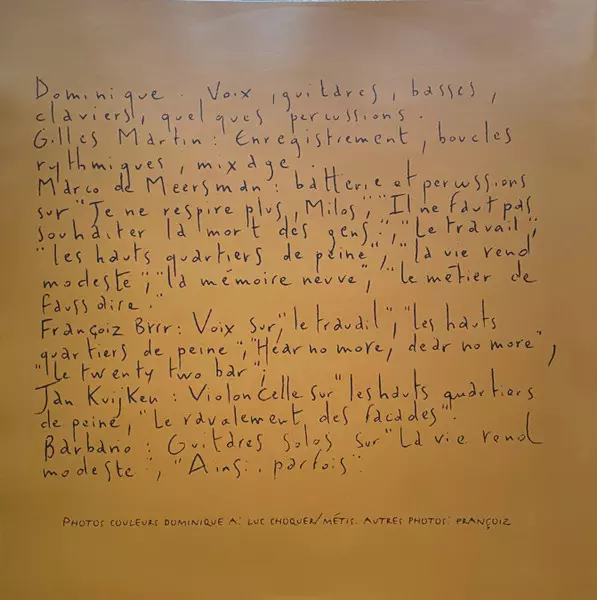 Dominique . Voix , guitares, basses,
claviers, quelques percussions .
Gilles Martin : Enregistrement, boucles
rythmiques, mixage .
Marco de Meersman : batterie et percussions
sur "Je ne respire plus, Milos", "Il ne faut pas
souhaiter la mort des gens", "Le travail",
"les hauts quartiers de peine", "la vie rend
modeste", "la mémoire neuve", "le métier de
faussaire."
Françoiz Brrr : Voix sur "le travail", "les hauts
quartiers de peine", "Hear no more, dear no more",
"le twenty two bar".
Jan Kuijken : Violoncelle sur "les hauts quartiers
de peine, "Le ravalement des façades".
Barbano : Guitares solos sur "La vie rend
modeste", "Ainsi. parfois".
PHOTOS COULEURS DOMINIQUE A: LUC CHOQUER/MÉTIS. AUTRES PHOTOS: FRANÇOIZ